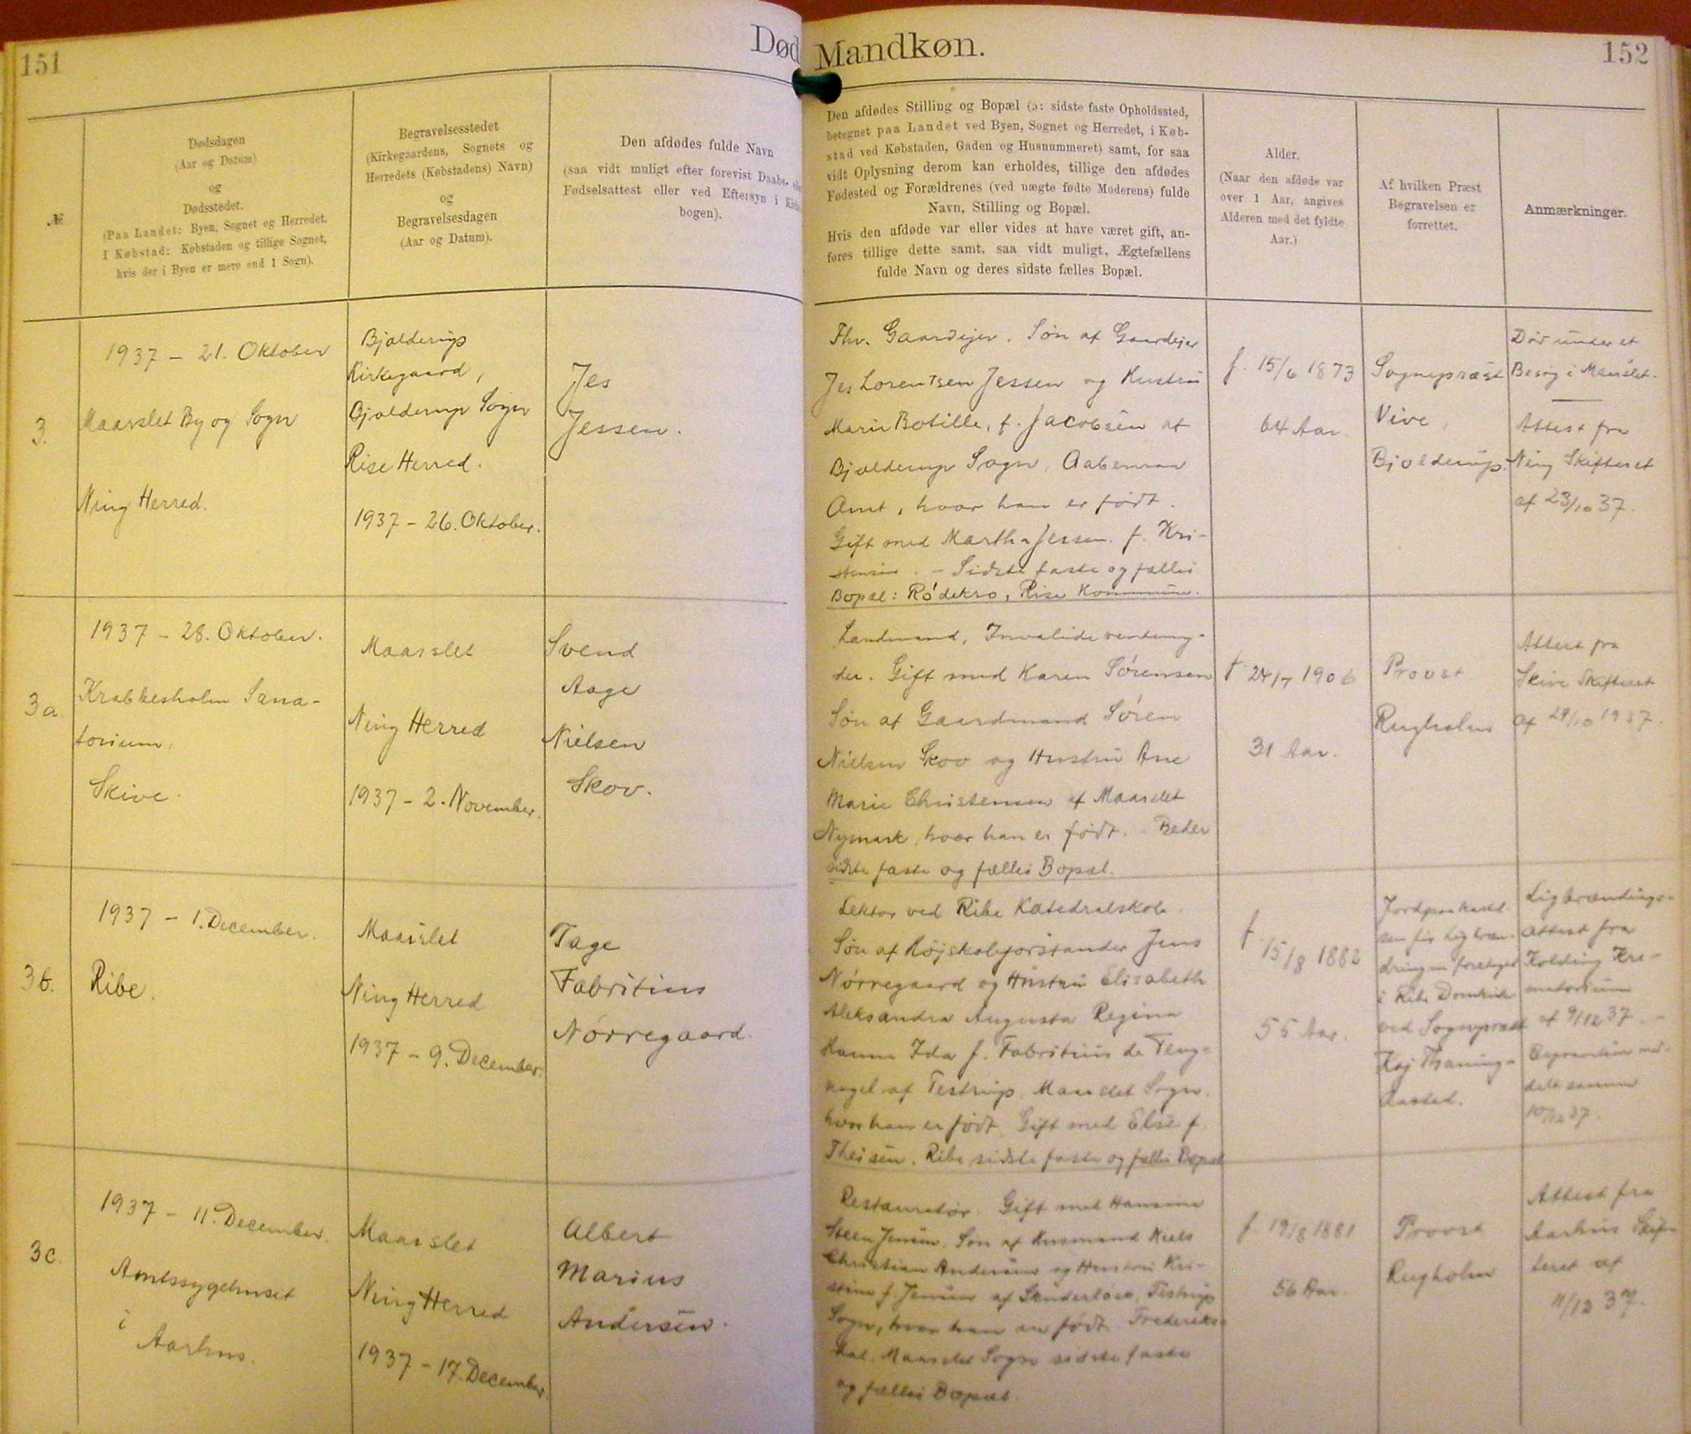 151
Død
Mandkøn.
152
№
Dødsdagen
(Aar og Datum)
og
Dødsstedet.
(Paa Landet: Byen, Sognet og Herredet.
I Købstad: Købstaden og tillige Sognet,
hvis der i Byen er mere end 1 Sogn).
Begravelsesstedet
(Kirkegaardens, Sognets og
Herredets (Købstadens) Navn)
og
Begravelsesdagen
(Aar og Datum).
Den afdødes fulde Navn
(saa vidt muligt efter forevist Daabs-
Fødselsattest eller ved Eftersyn i
bogen).
Den afdødes Stilling og Bopæl (ɔ: sidste faste Opholdssted,
betegnet paa Landet ved Byen, Sognet og Herredet, i Køb-
stad ved Købstaden, Gaden og Husnummeret) samt, for saa
vidt Oplysning derom kan erholdes, tillige den afdødes
Fødested og Forældrenes (ved uægte fødte Moderens) fulde
Navn, Stilling og Bopæl.
Hvis den afdøde var eller vides at have været gift, an-
føres tillige dette samt, saa vidt muligt, Ægtefællens
fulde Navn og deres sidste fælles Bopæl.
Alder.
(Naar den afdøde var
over 1 Aar, angives
Alderen med det fyldte
Aar.)
Af hvilken Præst
Begravelsen er
forrettet.
Anmærkninger.
3.
1937 – 21. Oktober
Maarslet By og Sogn
Ning Herred.
Bjolderup
Kirkegaard,
Bjolderup Sogn
Rise Herred.
1937 – 26. Oktober.
Jes
Jessen.
Fhv. Gaardejer. Søn af Gaardejer
Jes Lorentsen Jessen og Hustru
Marie Botille, f. Jacobsen af
Bjolderup Sogn, Aabenraa
Amt, hvor han er født.
Gift med Martha Jessen f. Kri-
stensen. – Sidste faste og fælles
Bopæl: Rødekro, Rise Kommune.
f. 15/6 1873
64 Aar.
Sognepræst
Vive,
Bjolderup.
Død under et
Besøg i Maarslet.
Attest fra
Ning Skifteret
af 23/10 37.
3a
1937 – 28. Oktober.
Krabbesholm Sana-
torium,
Skive.
Maarslet
Ning Herred
1937 – 2. November.
Svend
Aage
Nielsen
Skov.
Landmand, Invaliderenteny-
der. Gift med Karen Sørensen
Søn af Gaardmand Søren
Nielsen Skov og Hustru Ane
Marie Christensen af Maarslet
Nymark, hvor han er født. Beder
sidste faste og fælles Bopæl.
f. 24/7 1906
31 Aar.
Provst
Rugholm
Attest fra
Skive Skifteret
af 29/10 1937.
3b.
1937 – 1. December.
Ribe.
Maarslet
Ning Herred
1937 – 9. December.
Tage
Fabritius
Nørregaard.
Lektor ved Ribe Katedralskole.
Søn af Højskoleforstander Jens
Nørregaard og Hustru Elisabeth
Aleksandra Augusta Regina
Hanne Ida f. Fabritius de Teng-
nagel af Testrup, Maarslet Sogn,
hvor han er født. Gift med Else f.
Theisen. Ribe sidste faste og fælles Bopæl
f. 15/8 1882
55 Aar.
Jordpaakastel-
sen før Ligbræn-
dingen foretaget
i Ribe Domkirke
ved Sognepræst
Kaj Thaning-
Aasted.
Ligbrændings-
attest fra
Kolding Kre-
matorium
af 9/12 37. –
med-
delt samme
10/12 37.
3c.
1937 – 11. December.
Amtssygehuset
i
Aarhus.
Maarslet
Ning Herred
1937 – 17. December.
Albert
Marius
Andersen.
Restauratør. Gift med Hansine
Steen Jensen. Søn af Husmand Niels
Christian Andersen og Hustru Kri-
stine f. Jensen af Testrup
Sogn, hvor han er født. Frederiks-
dal, Maarslet Sogn sidste faste
og fælles Bopæl.
f. 19/8 1881
56 Aar.
Provst
Rugholm
Attest fra
Aarhus Skif-
teret af
11/12 37.